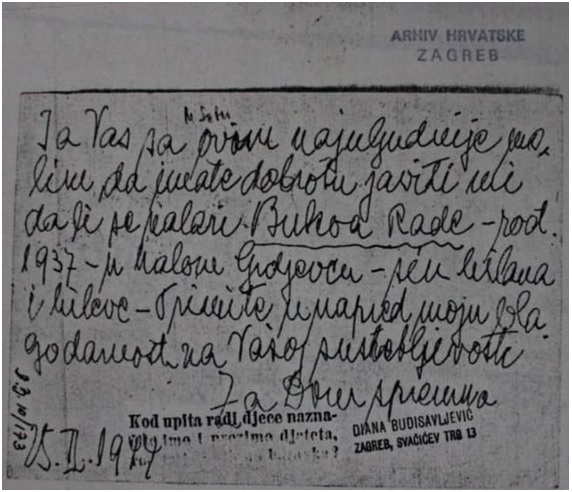 ARHIV HRVATSKE
ZAGREB
Ja Vas sa ovom najuljudnije mo-
lim, da imate dobrotu javiti mi
da li se nalazi Bukva Rade - rod.
1937 - u Malom Gradjevcu - sin Milana
i Mileve - Primite unapred moju bla
godarnost na Vašoj susretljivosti
Za Dom spremna
Kod upita radi djece nazna-
ime i prezime djeteta,
DIANA BUDISAVLJEVIĆ
ZAGREB, SVAČIĆEV TRG 13
15. II. 1944